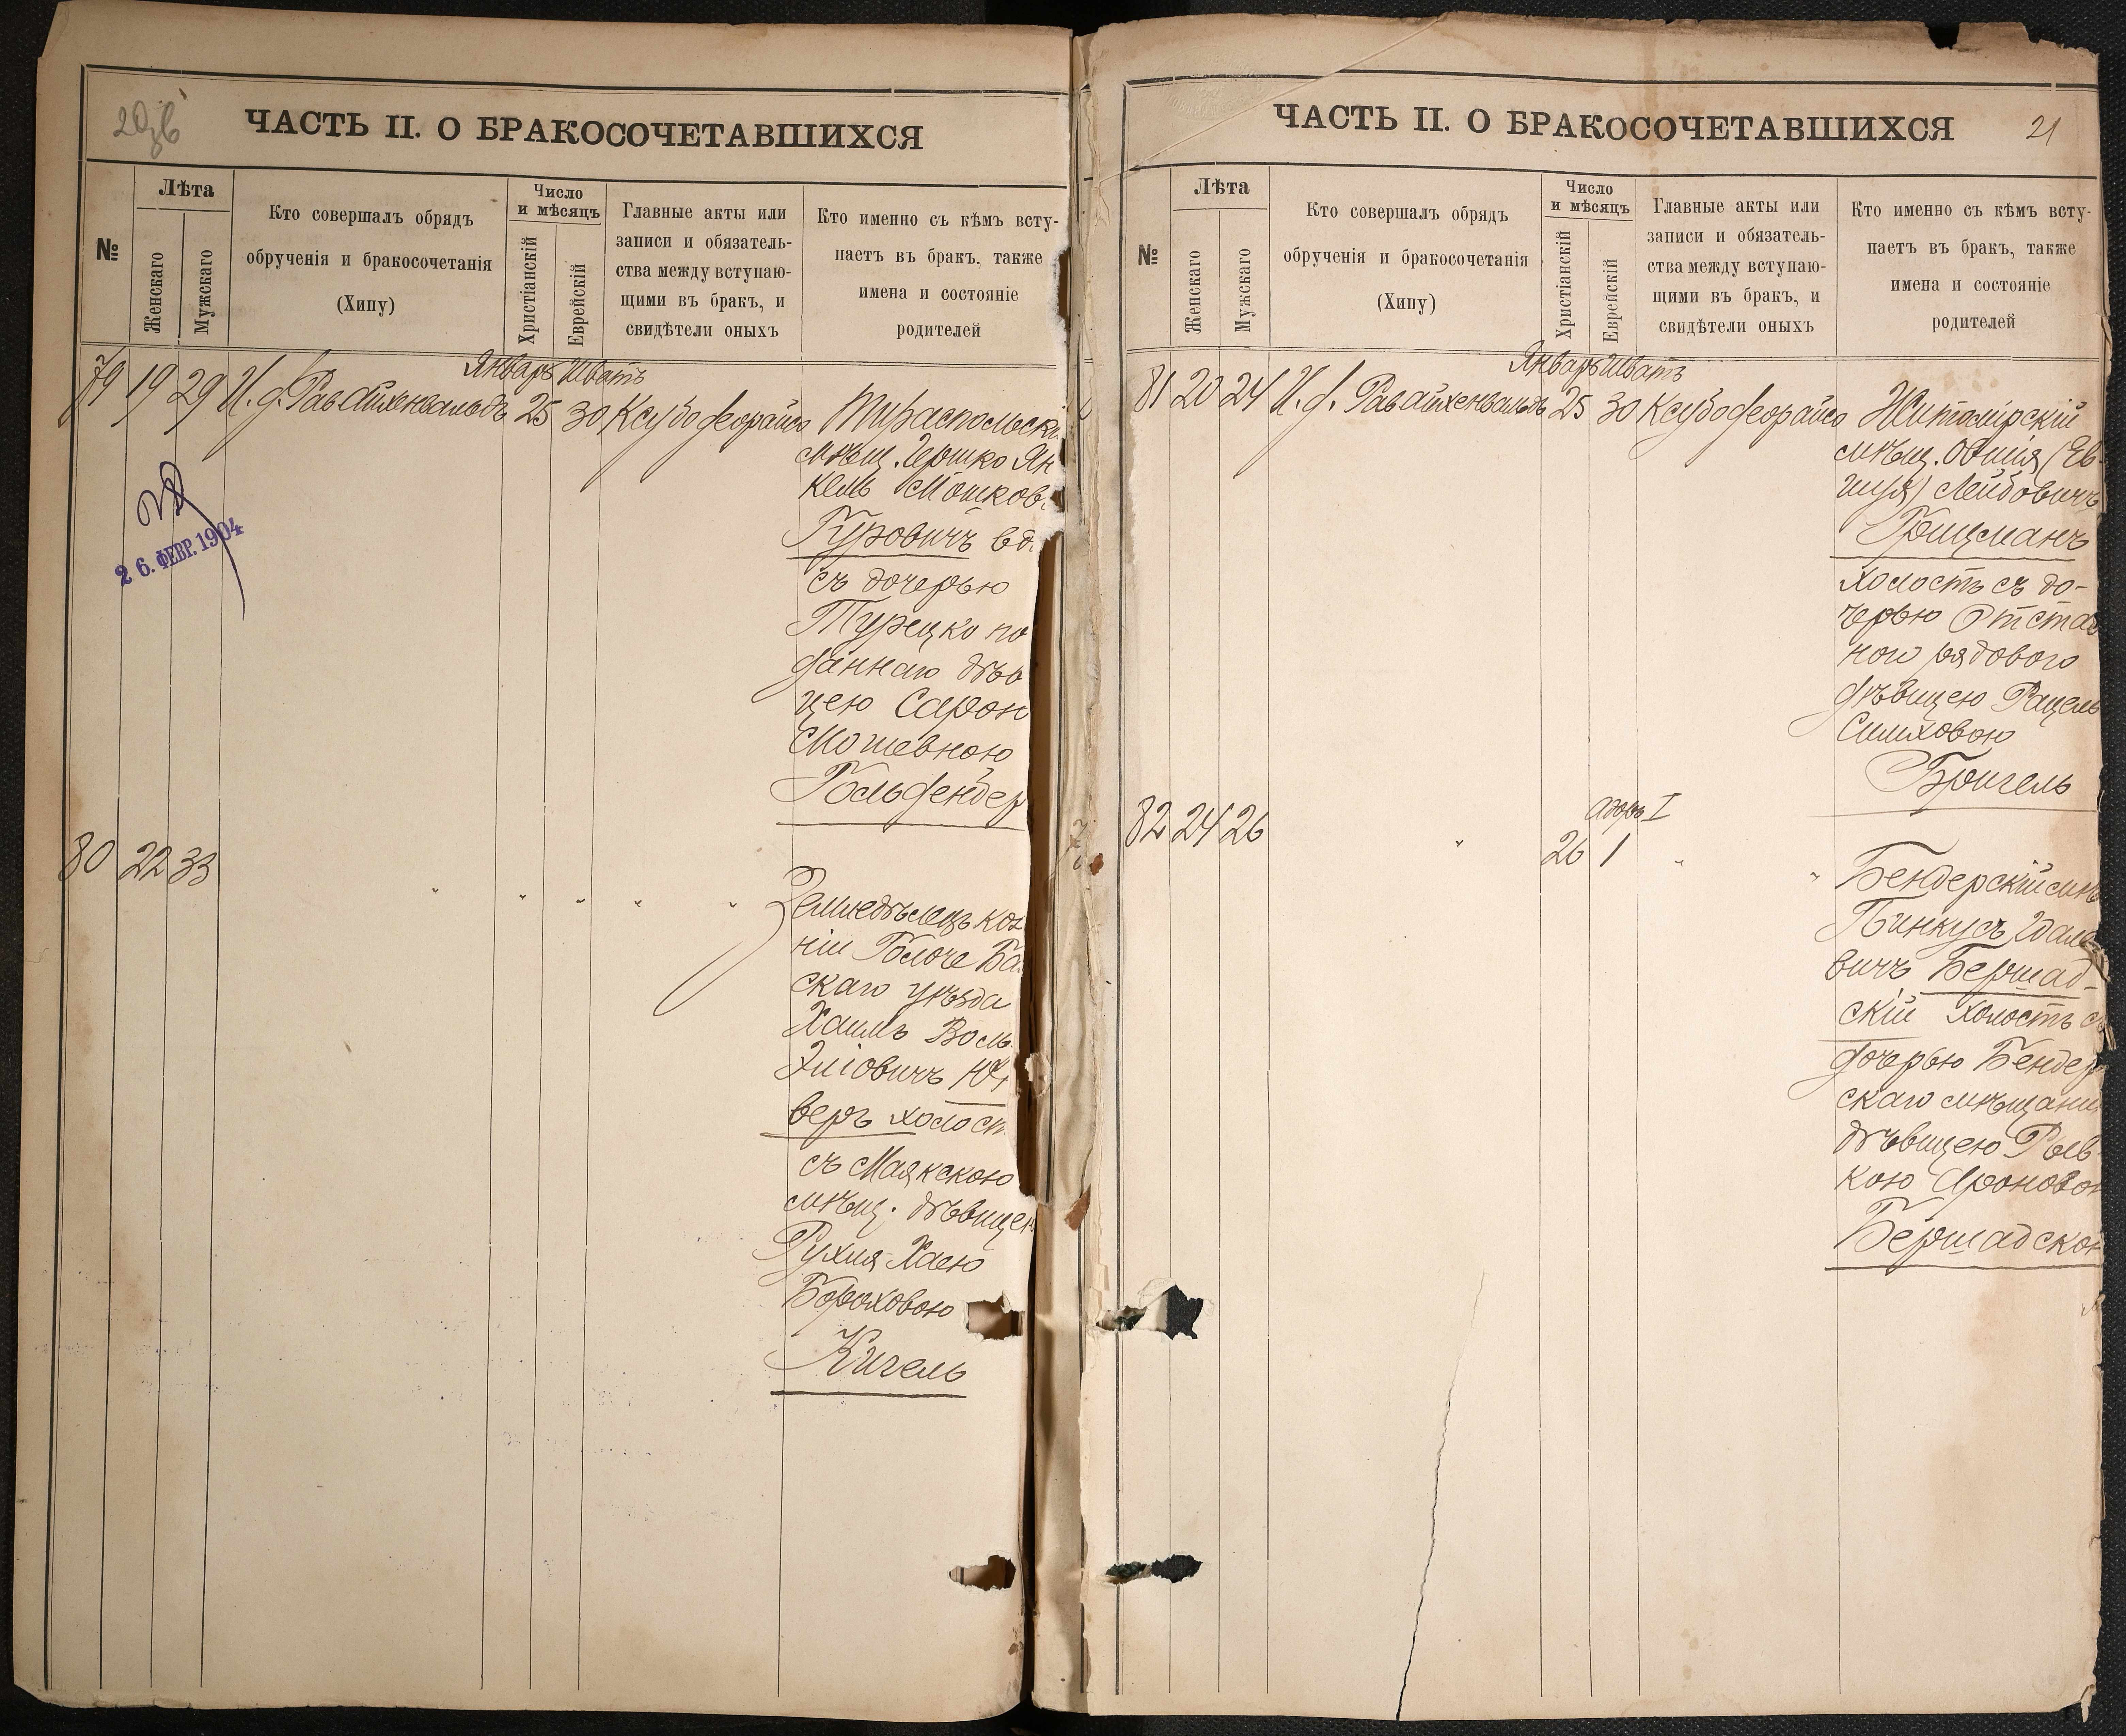 20об
ЧАСТЬ II. О БРАКОСОЧЕТАВШИХСЯ
№
Лѣта
Женскаго
Мужскаго
Кто совершалъ обрядъ
обрученія и бракосочетанія
(Хипу)
Число
и мѣсяцъ
Христіанскій
Еврейскій
Главные акты или
записи и обязатель-
ства между вступаю-
щими въ бракъ, и
свидѣтели оныхъ
Кто именно съ кѣмъ всту-
паетъ въ бракъ, также
имена и состояніе
родителей
Январь Шватъ
79 19 29 И. д. Рав. Айхенвальдъ 25 30 Ксубо феорайсо Тираспольскі
мѣщ. Гершко Ян
кель Мошков.
Гуровичъ вд.
съ дочерью
Турецко по
даннаго дѣв
цею Сарою
Мошевною
Гольфендер
26. ФЕВР. 1904
80 22 33 " " " " "
Земледѣлецъ кол
ніи
скаго уѣзда
Хаимъ Воль
Эліовичъ
веръ холост.
съ Маякскою
мѣщ. дѣвицею
Рухля-Хаею
Бороховою
Кигель
ЧАСТЬ II. О БРАКОСОЧЕТАВШИХСЯ
21
№
Лѣта
Женскаго
Мужскаго
Кто совершалъ обрядъ
обрученія и бракосочетанія
(Хипу)
Число
и мѣсяцъ
Христіанскій
Еврейскій
Главные акты или
записи и обязатель-
ства между вступаю-
щими въ бракъ, и
свидѣтели оныхъ
Кто именно съ кѣмъ всту-
паетъ въ бракъ, также
имена и состояніе
родителей
Январь Шватъ
81 20 24 И. д. Рав. Айхенвальдъ 25 30 Ксубо феорайсо Житомірскій
мѣщ. Овшія (Ев-
шія) Лейбовичъ
Гойцманъ
холостъ съ до-
черью Отстав
ного рядового
дѣвицею Рацель
Симховою
Бригель
Адоръ I
82 24 26 " 26 1 " "
Бендерскій мѣ
Пинкусъ Идале
вичъ Бершад-
скій холостъ с
дочерью Бендер
скаго мѣщани
дѣвицею Рыв
кою Ароновою
Бершадскою